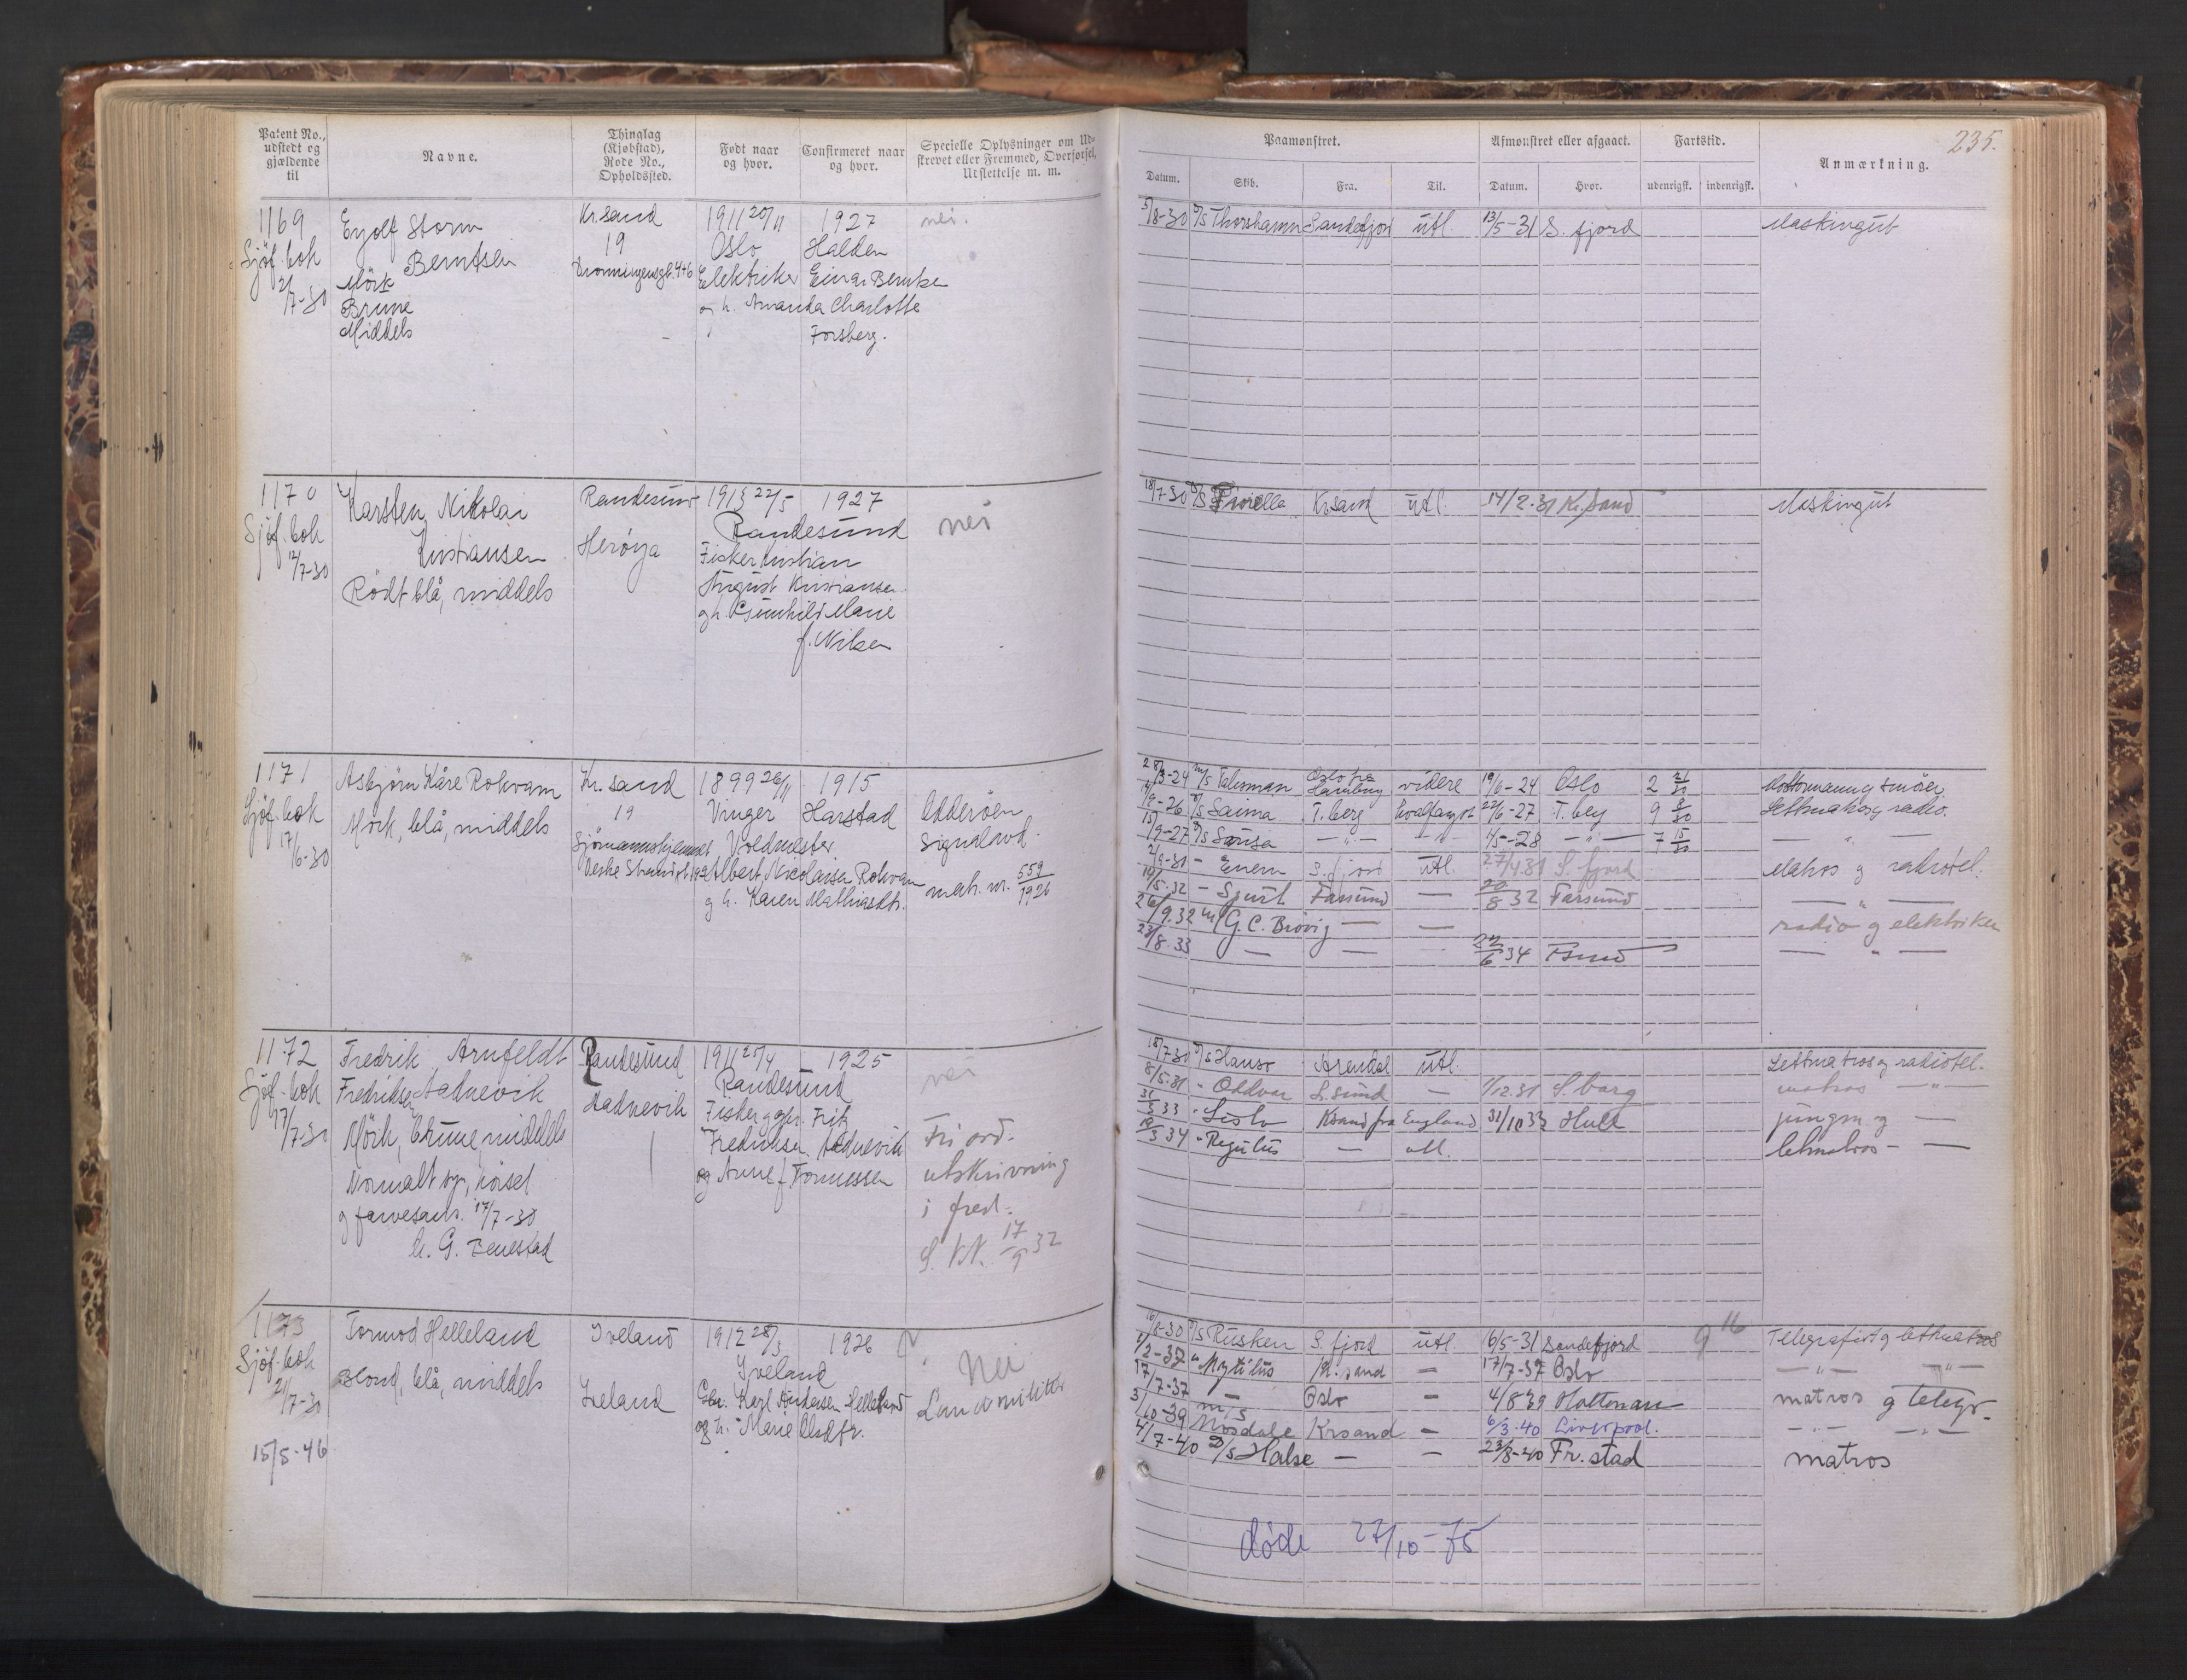 235.
Patent No., udstedt og gjældende til
Navne.
Thinglag (Kjøbstad), Rode No., Opholdssted.
Født naar og hvor.
Confirmeret naar og hvor.
Specielle Oplysninger om Udstrevet eller Fremmed, Overførsel, Udslettelse m. m.
Paamønstret.
Datum. Skib. Fra. Til.
Afmønstret eller afgaaet.
Datum. Hvor.
Fartstid.
udenrigsk. indenrigsk.
Anmærkning.
1169
Sjøf. bok
21/7-30
Eyolf Storm
Berntsen
Mörk
Brune
Middels
Kr.sand
19
Dronningensgt. 46
1911 20/11 1927
Oslo Halden
Elektriker Einar Berntsen
og h. Amanda Charlotte
Forsberg.
nei.
5/8-30 D/S Thorshamn Sandefjord utl. 13/5-31 S. fjord Maskingut
1170
Sjöf. bok
12/7-30
Karsten Nikolai
Kristiansen
Rödt blå, middels
Randesund
Herøya
1913 22/5 1927
Randesund
Fisker Kristian
August Kristiansen
og h. Gunhild Marie
f. Nilsen
nei
18/7-30 D/S Fiorella Kr.sand utl. 14/2-31 Kr.sand Maskingut
1171
Sjöf. bok
17/6-30
Asbjørn Kåre Rokvam
Mörk, blå, middels
Kr. sand
19
Sjömannshjemmet
Vestre Strandgt. 19
1899 26/11 1915
Vinger Harstad
Voldmester
Albert Nicolaisen Rokvam
g h. Karen Mathiasdtr.
Odderöen
Signalavd.
matr. nr. 559/1926
28/3-24 M/S Talisman Oslo fra Hamburg videre 19/6-24 Oslo 2 21/30 Motormann g smörer
/9-26 D/S Saima T.berg hvalfangst 22/6-27 T.berg 9 8/30 Lettmatros g radio.
15/9-27 D/S — " — " 4/5-28 — " — 7 15/30 — " —
2/9-30 - Enern S. fjord utl. 27/4 31 S. fjord Matros g radiotel.
14/5.32 - Spurt Farsund — 20/8 32 Farsund — " —
26/9.32 M/ G.C. Brövig — — radio g elektriker
23/8.33 — — 22/6 34 Fsund — " —
1172
Sjöf. bok
17/7-30
Fredrik Arnfeldt
Fredriksen Aadnevik
Mörk, brune, middels
Normalt syn, hörsel
g farvesans. 17/7-30
G. Benestad
Randesund
Aadnevik
1911 25/4 1925
Randesund
Fisker g gbr. Fritz
Fredriksen Aadnevik
og Anne f. Tönnessen
nei
Fri ord.
utskrivning
i fred.
S. kt. 17/9 32
18/7-30 D/S Hansø Arendal utl. Lettmatros g radiotel.
8/5-31 - Oddvar L.sund — 1/12.31 S.borg matros — " —
31/3 33 - Lisbo Krsand fra England 31/10 33 Hull jungm. g —
19/3 34 - Regulus — utl. letmatros - —
1173
Sjöf. bok
21/7-30
15/5-46
Tormod Helleland
Blond, blå, middels
Iveland
Iveland
1912 28/3 1926
Iveland
Gbr. Karl Andersen Helleland
og h. Marie Olsdtr.
Nei
Landmilitär
16/8-30 D/S Rusken S. fjord utl. 6/5-31 Sandefjord 9 16 Telegrafist g letmatros
1/2-37 " Mytilus Kr. sand — 17/7-37 Oslo — " — — " —
17/7-37 — Oslo — 4/8 39 matros g telegr.
3/10-39 M/S Mosdale Krsand — 6/3-40 Liverpool. — " — — " —
4/7-40 D/S Halse — — 23/8-40 Fr.stad matros
døde 27/10-75